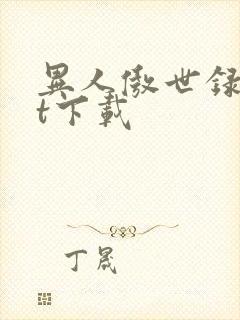 異人傲世録
t下載
丁晟